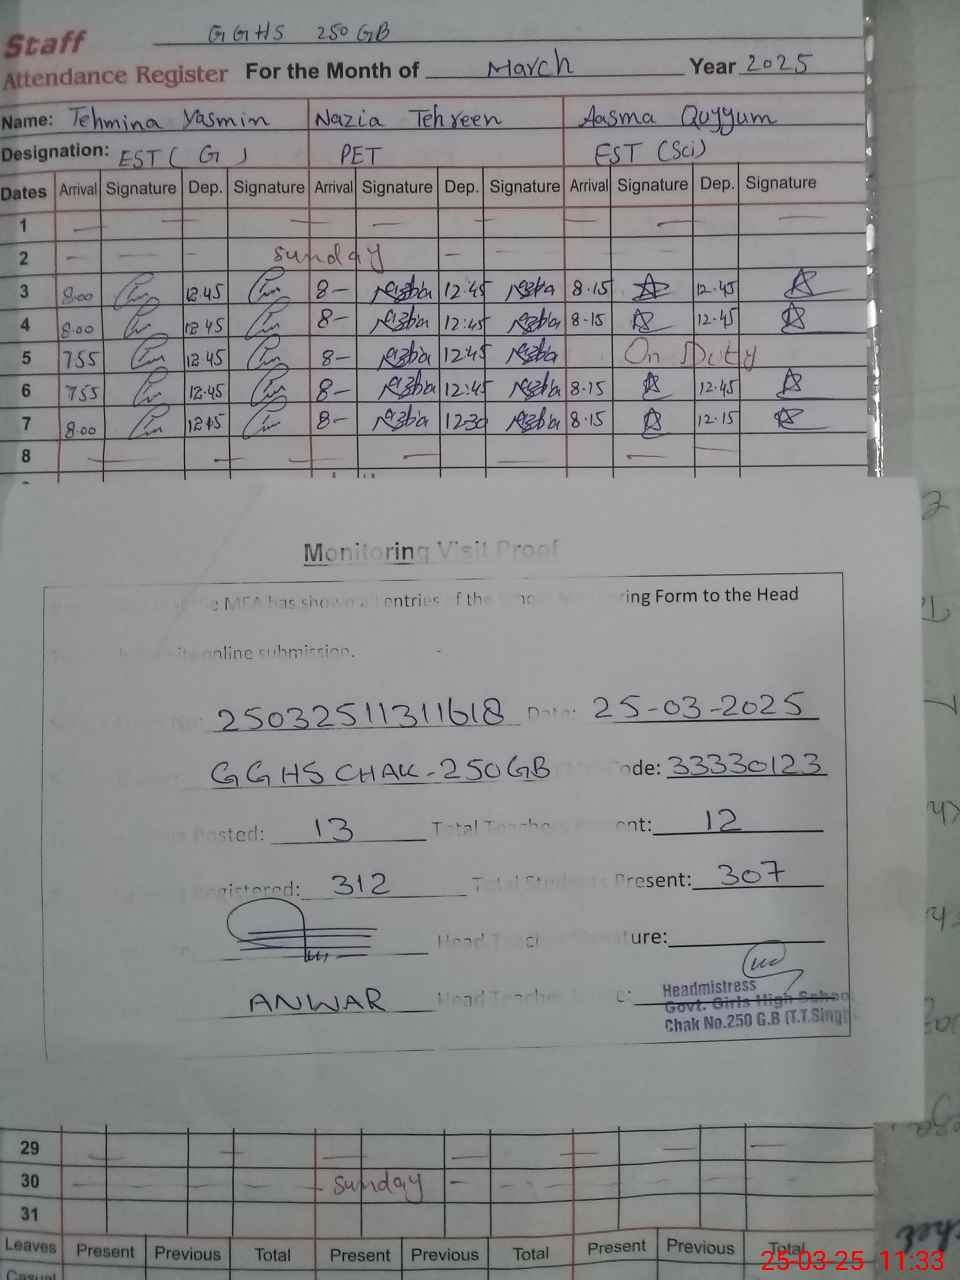 GGHS 250 GB
Staff
Attendance Register For the Month of March Year 2025
Name: Tehmina Yasmin Nazia Tehreen Aasma Quyyum
Designation: EST ( G ) PET EST (Sci)
Dates Arrival Signature Dep. Signature Arrival Signature Dep. Signature Arrival Signature Dep. Signature
1
2 Sunday
3 8:00 12.45 8- 12:45 8.15 12.45
4 8:00 12 45 8- 12:45 8-15 12.45
5 755 12.45 8- 12:45 On Duty
6 755 12.45 8- 12:45 8.15 12.45
7 8:00 12:15 8- 12:30 8.15 12.15
8
Monitoring Visit Proof
MEA has shown all entries of the ring Form to the Head
online submission.
25032511311618 Date: 25-03-2025
GGHS CHAK-250GB ode: 33330123
Posted: 13 Total Teachers ent: 12
Registered: 312 Total Students Present: 307
Head ture:
ANWAR Head Teacher
Headmistress
Govt. Girls High School
Chak No.250 G.B (T.T.Singh
29
30 Sunday
31
Leaves Present Previous Total Present Previous Total Present Previous Total
Casual
25-03-25 11:33